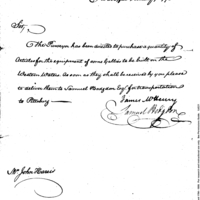 Sir,
The Purveyor has been directed to purchase a quantity of
Articles for the equipment of some Gallies to be built on the
Western Waters. As soon as they shall be received by you please
to deliver them to Samuel Hodgdon Esqr. for transportation
to Pittsburg.
James McHenry
Samuel Hodgdon
Mr. John Harris